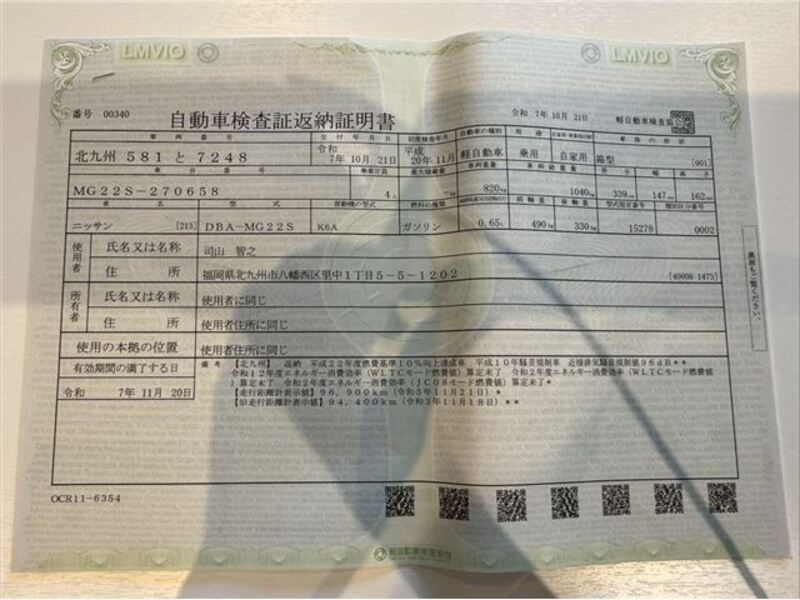 LMVIO
LMVIO
番号 00340
自動車検査証返納証明書
令和 7年10月21日
軽自動車検査協会
車両番号 交付年月日 初度検査年月 自動車の種別 用途 自家用・事業用の別 車体の形状
北九州 581 と 7248 令和 7年10月21日 平成 20年11月 軽自動車 乗用 自家用 箱型 [001]
車台番号 乗車定員 最大積載量 車両重量 車両総重量 長さ 幅 高さ
MG22S-270658 4人 820kg 1040kg 339cm 147cm 162cm
車名 型式 原動機の型式 燃料の種類 前軸重 後軸重 型式指定番号 類別区分番号
ニッサン [213] DBA-MG22S K6A ガソリン 0.65L 490kg 330kg 15278 0002
使用者 氏名又は名称 司山 智之
住所 福岡県北九州市八幡西区里中1丁目5-5-1202 [40008-1473]
所有者 氏名又は名称 使用者に同じ
住所 使用者住所に同じ
使用の本拠の位置 使用者住所に同じ
有効期間の満了する日
令和 7年11月20日
備考 【北九州】 返納 平成22年度燃費基準10%向上達成車 平成10年騒音規制車 近接排気騒音規制値96dB**
令和12年度エネルギー消費効率(WLTCモード燃費値)算定未了 令和2年度エネルギー消費効率(WLTCモード燃費値
)算定未了 令和2年度エネルギー消費効率(JC08モード燃費値)算定未了*
【走行距離計表示値】96,900km(令和5年11月21日)*
【旧走行距離計表示値】94,400km(令和3年11月18日)**
裏面もご覧ください。
OCR11-6354
軽自動車検査協会